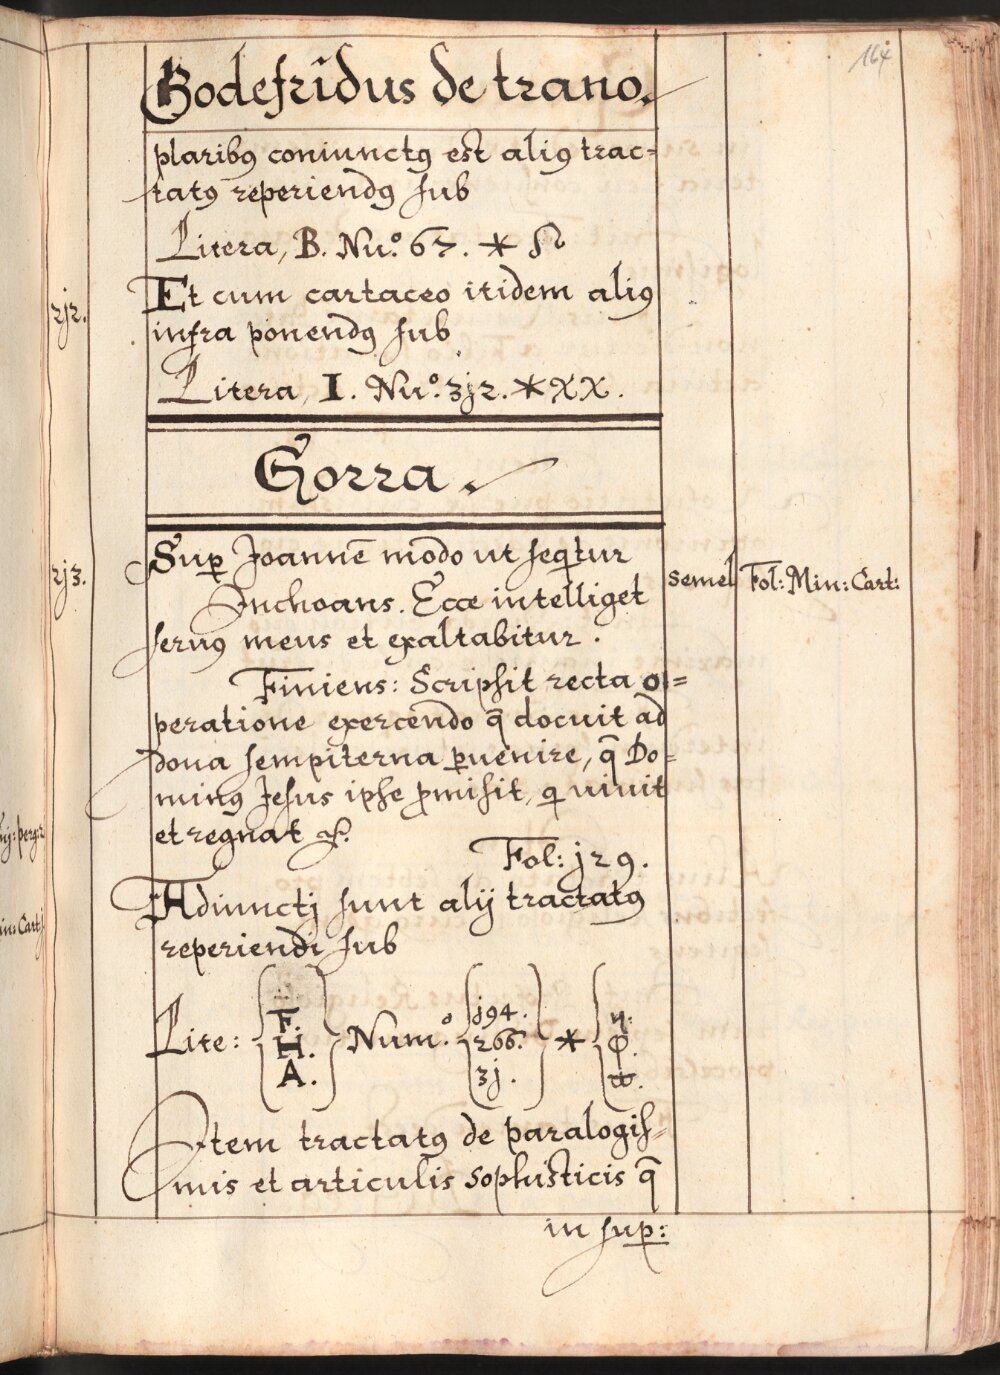 164
Godefridus de trano.
plaribꝰ coniunctꝰ est aliꝰ trac=
tatꝰ reperiendꝰ sub
Litera, B. Nu.º 67. *
2j2. Et cum cartaceo itidem aliꝰ
infra ponendꝰ sub
Litera, I. Nu.º 3j2. * XX.
Gorra.
2j3. Suꝑ Joannē modo ut seqtur semel Fol: Min: Cart:
Inchoans. Ecce intelliget
seruꝰ meus et exaltabitur.
Finiens: Scripsit recta o=
peratione exercendo q̄ docuit ad
dona sempiterna ꝑuenire, q̄ Do=
minꝰ Jesus ipse ꝓmisit, qi uiuit
et regnat
Fol: j29.
Adiunctj sunt alij tractatꝰ
reperiendi sub
Lite: { F. H. A. } Num.º { j94. 266. 3j. } * { η. Φ. }
Item tractatꝰ de paralogis=
mis et articulis sophisticis q̄
in suꝑ: